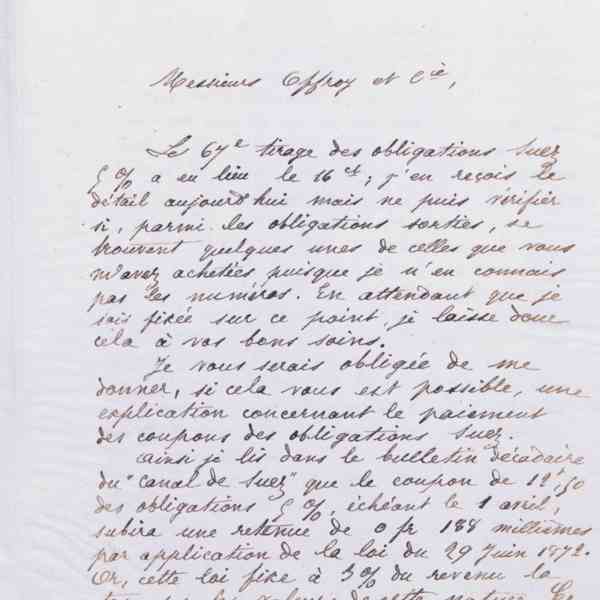 Messieurs Offroy et Cie,
Le 67e tirage des obligations Suez
5 % a eu lieu le 16 ct; j'en reçois le
détail aujourd'hui mais ne puis vérifier
si, parmi les obligations sorties, se
trouvent quelques unes de celles que vous
m'avez achetées puisque je n'en connais
pas les numéros. En attendant que je
sois fixée sur ce point, je laisse donc
cela à vos bons soins.
Je vous serais obligée de me
donner, si cela vous est possible, une
explication concernant le paiement
des coupons des obligations Suez.
Ainsi je lis dans le bulletin décadaire
du "canal de Suez" que le coupon de 12f50
des obligations 5 %, échéant le 1 avril,
subira une retenue de 0 fr 188 millièmes
par application de la loi du 29 Juin 1872.
Or, cette loi fixe à 3 % du revenu la
de cette nature